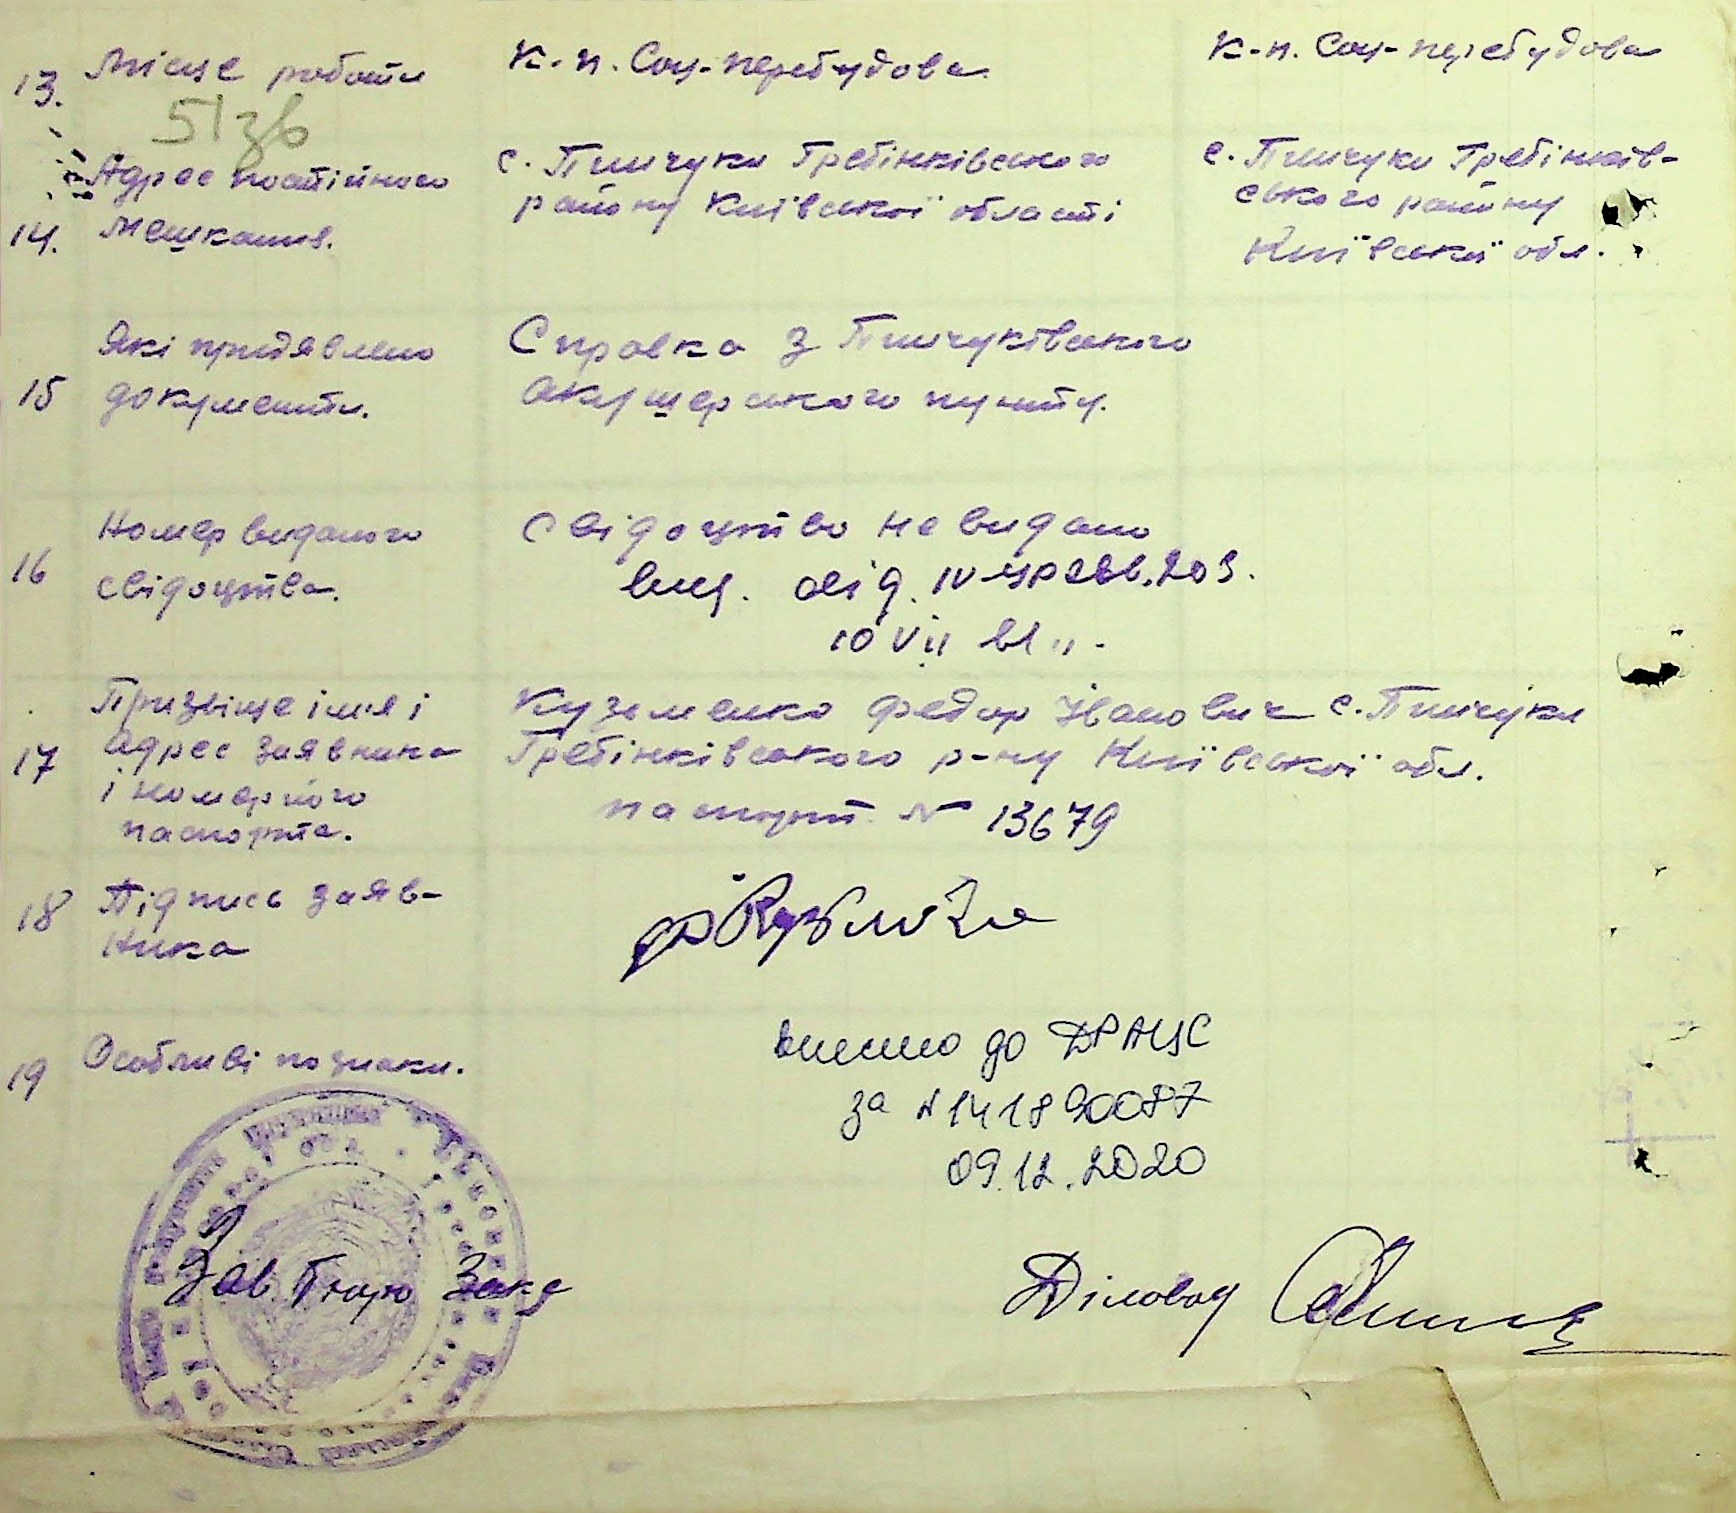 13. Місце роботи
К.-п. Соц-перебудова
К-п. Соц-перебудова
51зв
14. Адрес постійного
мешкання.
с. Пинчуки Гребінківського
району Київської області
с. Пинчуки Гребінків-
ського району
Київської обл.
15 Які придявлено
документи.
Справка з Пинчуківського
акушерського пункту.
16 Номер виданого
свідоцтва.
Свідоцтво не видано
вид. свід. IV
10 VII
17 Призвіще імя і
адрес заявника
і номер його
паспорта.
Кузьменко Федор Іванович с. Пинчуки
Гребінківського р-ну Київської обл.
паспорт № 13679
18 Підпись заяв-
ника
19 Особливі познаки.
внесено до ДРАЦС
за №14189 0087
09.12.2020
Зав. Бюро Загс
Діловод